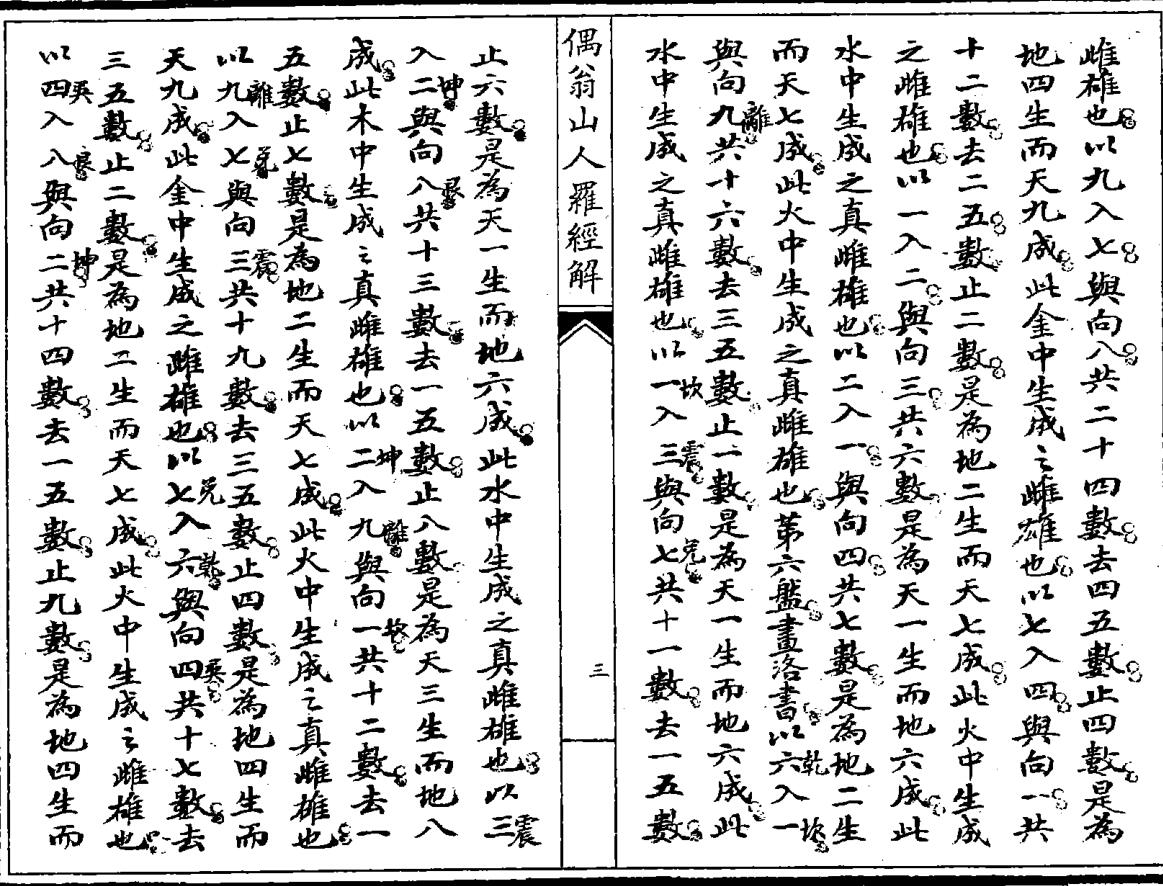 雌雄也以九入七與向八共二十四數去四五數止四數是為
地四生而天九成此金中生成之雌雄也以七入四與向一共
十二數去二五數止二數是為地二生而天七成此火中生成
之雌雄也以一入二與向三共六數是為天一生而地六成此
水中生成之真雌雄也以二入一與向四共七數是為地二生
而天七成此火中生成之真雌雄也第六盤畫洛書以六乾入一坎
與向九離共十六數去三五數止一數是為天一生而地六成此
水中生成之真雌雄也以一坎入三震與向七兌共十一數去一五數
偶翁山人羅經解
三
止六數是為天一生而地六成此水中生成之真雌雄也以三震
入二坤與向八艮共十三數去一五數止八數是為天三生而地八
成此木中生成之真雌雄也以二坤入九離與向一坎共十二數去一
五數止七數是為地二生而天七成此火中生成之真雌雄也
以九離入七兌與向三震共十九數去三五數止四數是為地四生而
天九成此金中生成之雌雄也以七兌入六乾與向四巽共十七數去
三五數止二數是為地二生而天七成此火中生成之雌雄也
以四巽入八艮與向二坤共十四數去一五數止九數是為地四生而